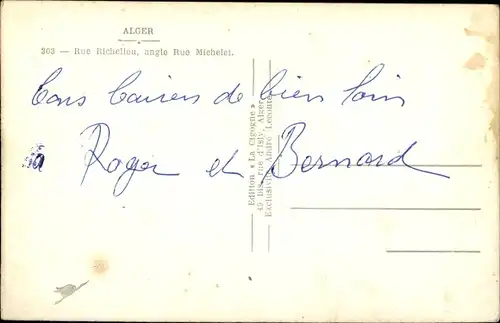 ALGER
303 — Rue Richelieu, angle Rue Michelet.
Bons baisers de bien loin
Roger et Bernard
Edition « La Cigogne »
49 bis, rue d'Isly, Alger
Exclusivité André Leconte